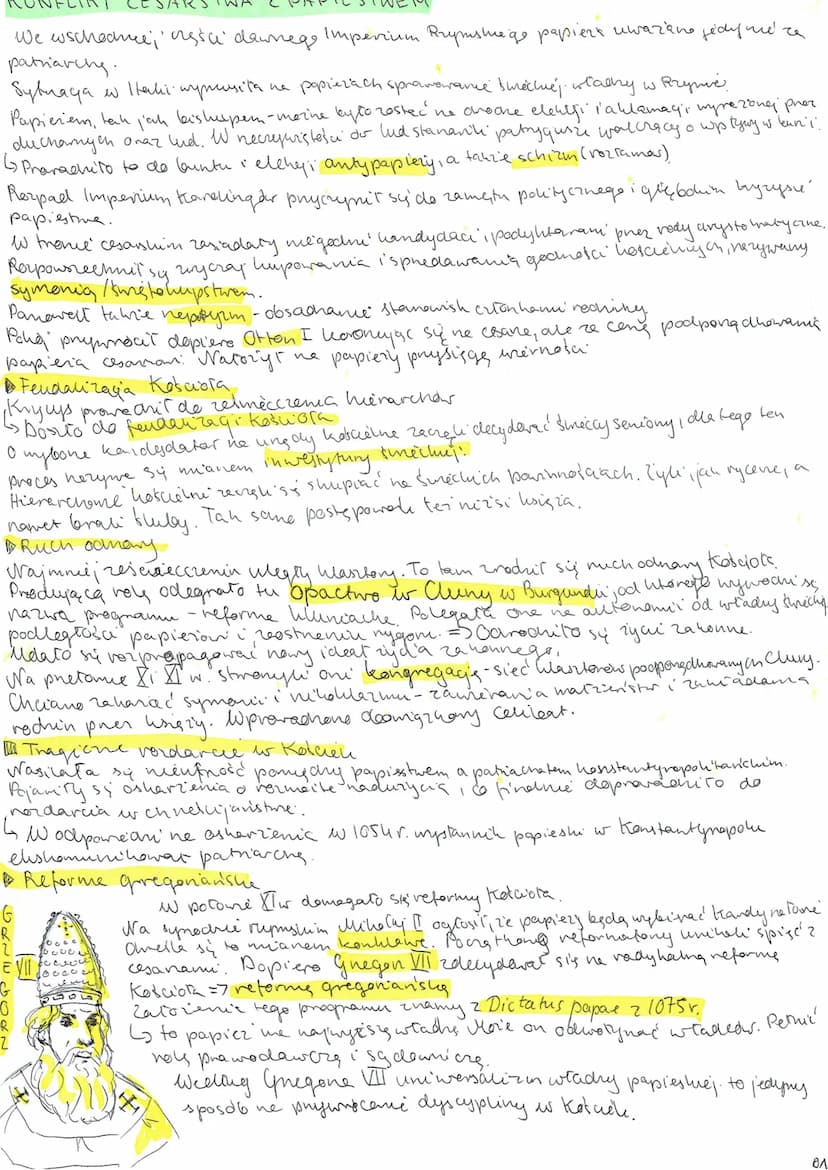 KONFLIKT CESARSTWA Z PAPIESTWEM
We wschodniej części dawnego Imperium Rzymskiego papieża uważano jedynie za
patriarchę.
Sytuacja w Italii wymusiła na papieżach sprawowanie świeckiej władzy w Rzymie.
Papieżem, tak jak biskupem - można było zostać na drodze elekcji i aklamacji wyrażonej przez
duchownych oraz lud. W rzeczywistości do lud stanowili patrycjusze walczący o wpływy w kurii.
↳ Prowadziło to do buntu i elekcji antypapieży, a także schizm (rozłamów)
Rozpad Imperium Karolingów przyczynił się do zamętu politycznego i głębokim kryzysie
papiestwa.
W tronie cesarskim zasiadały niegodni kandydaci, podyktowani przez rody arystokratyczne.
Rozpowszechnił się zwyczaj kupowania i sprzedawania godności kościelnych, nazywany
symonią/świętokupstwem.
Panował także nepotyzm - obsadzanie stanowisk członkami rodziny
Pokój przywrócił dopiero Otton I koronując się na cesarza, ale za cenę podporządkowania
papieża cesarzowi. Nałożył na papieży przysięgę wierności
Feudalizacja Kościoła
Kryzys prowadził do zeświecczenia hierarchów
↳ Doszło do feudalizacji kościoła
O wyborze kandydatów na urzędy kościelne zaczęli decydować świeccy seniorzy, dlatego ten
proces nazywa się mianem inwestytury świeckiej.
Hierarchowie kościelni zaczęli się skupiać na świeckich powinnościach. Żyli, jak rycerze, a
nawet brali śluby. Tak samo postępowali też niżsi księża.
Ruch odnowy
Najmniej zeświecczeniu uległy klasztory. To tam zrodził się ruch odnowy Kościoła.
Przodującą rolę odegrało tu Opactwo w Cluny w Burgundii, od którego wywodzi się
nazwa programu - reforma kluniacka. Polegała ona na autonomii od władzy świeckiej
podległości papieżowi i zaostrzeniu rygoru. => Odrodziło się życie zakonne.
Udało się rozpropagować nowy ideał życia zakonnego,
Na przełomie X i XI w. stworzyli oni kongregację - sieć klasztorów podporządkowanych Cluny.
Chciano zakazać symonii i nikolaizmu - zawierania małżeństw i zakładania
rodzin przez księży. Wprowadzono obowiązkowy celibat.
III Tragiczne rozdarcie w Kościele
Nasilała się nieufność pomiędzy papiestwem a patriachatem konstantynopolitańskim.
Pojawiły się oskarżenia o rozmaite nadużycia, co finalnie doprowadziło do
rozdarcia w chrześcijaństwie.
↳ W odpowiedzi na oskarżenia w 1054 r. wysłannik papieski w Konstantynopolu
ekskomunikował patriarchę.
Reforma gregoriańska
W połowie XI w domagało się reformy Kościoła.
Na synodzie rzymskim Mikołaj II ogłosił, że papieży będą wybierać kardynałowie
określa się to mianem konklawe. Początkowo reformatorzy unikali spięć z
cesarzami. Dopiero Grzegorz VII zdecydował się na radykalną reformę
Kościoła => reformą gregoriańską
Założenia tego programu znamy z Dictatus papae z 1075 r.
↳ to papież ma najwyższą władzę. Może on odwoływać władców. Pełnić
rolę prawodawczą i sądowniczą.
Według Grzegorza VII uniwersalizm władzy papieskiej to jedyny
sposób na przywrócenie dyscypliny w Kościele.
GRZEGORZ
VII